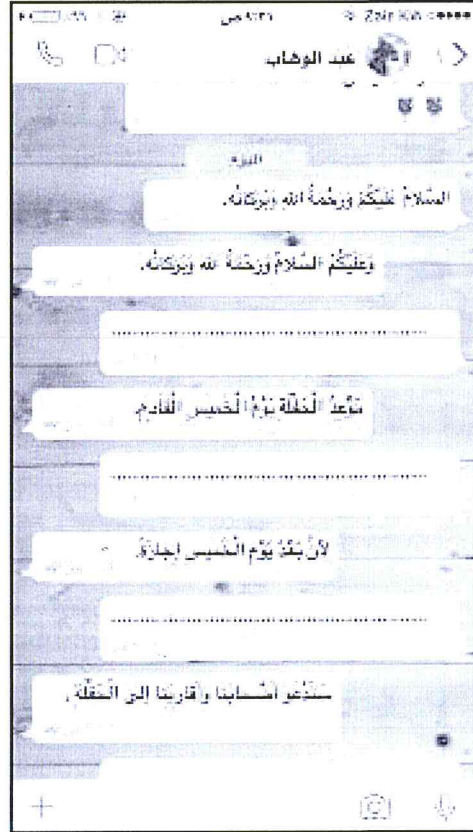 Zain KW
ص
عبد الوهاب
اليوم
السَّلامُ عَلَيْكُمْ وَرَحْمَةُ اللهِ وَبَرَكَاتُه.
وَعَلَيْكُمُ السَّلامُ وَرَحْمَةُ اللهِ وَبَرَكَاتُه.
........................................................
مَوْعِدُ الْحَفْلَةِ يَوْمُ الْخَميسِ الْقَادِمِ.
........................................................
لأَنَّ بَعْدَ يَوْمِ الْخَميسِ إجازَةٌ.
........................................................
سَنَدْعُو أصْحابنا وأقارِبَنا إلى الْحَفْلَة .